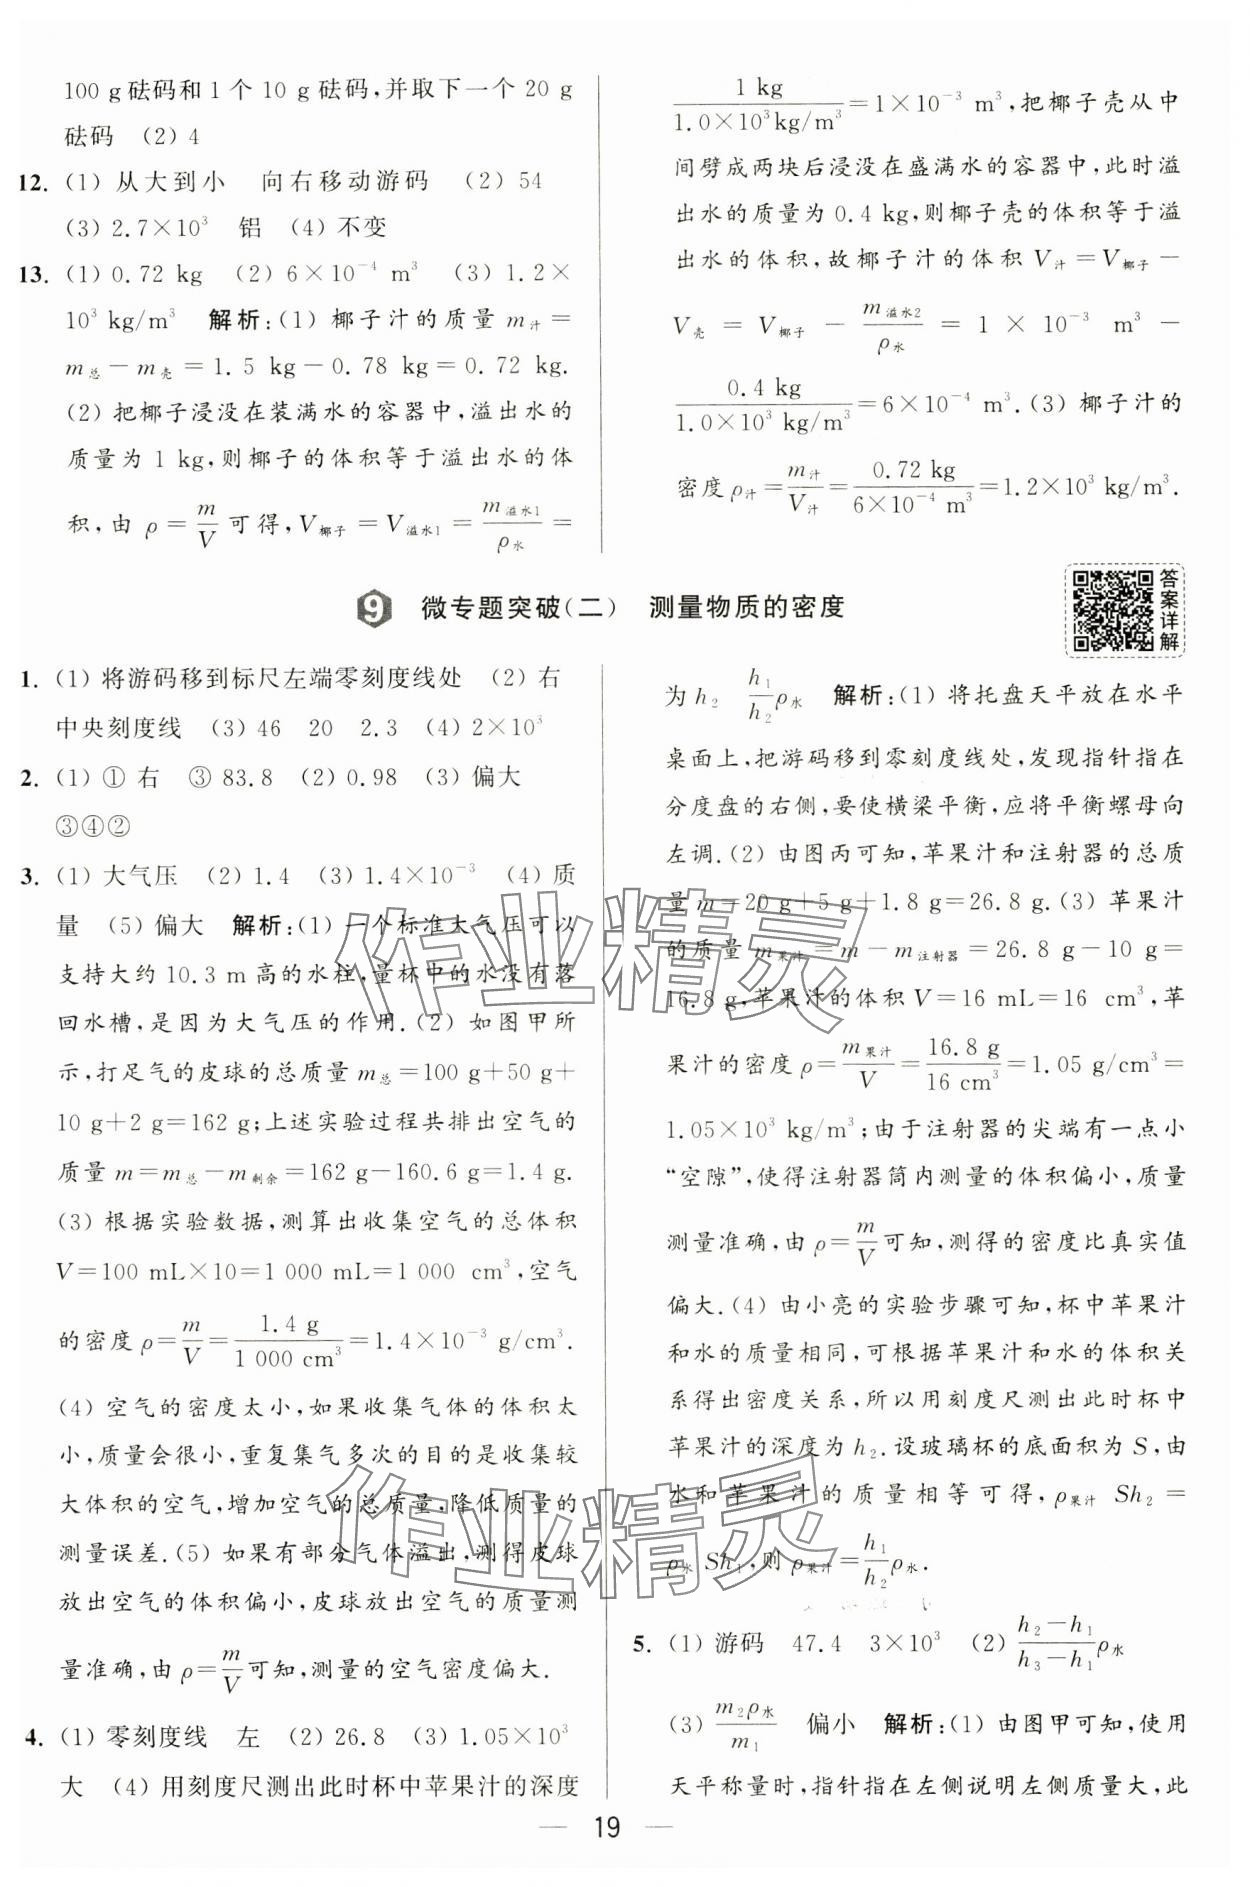 100 g砝码和1个10 g砝码,并取下一个20 g
砝码 (2)4
12. (1)从大到小 向右移动游码 (2)54
(3)2.7×10³ 铝 (4)不变
13. (1)0.72 kg (2)6×10⁻⁴ m³ (3)1.2×
10³ kg/m³ 解析:(1)椰子汁的质量 m汁=
m总-m壳=1.5 kg-0.78 kg=0.72 kg.
(2)把椰子浸没在装满水的容器中,溢出水的
质量为1 kg,则椰子的体积等于溢出水的体
积,由 ρ=m/V 可得,V椰子=V溢水1=m溢水1/ρ水=
1 kg/1.0×10³kg/m³=1×10⁻³ m³,把椰子壳从中
间劈成两块后浸没在盛满水的容器中,此时溢
出水的质量为0.4 kg,则椰子壳的体积等于溢
出水的体积,故椰子汁的体积V汁=V椰子-
V壳=V椰子-m溢水2/ρ水=1×10⁻³ m³-
0.4 kg/1.0×10³ kg/m³=6×10⁻⁴ m³.(3)椰子汁的
密度ρ汁=m汁/V汁=0.72 kg/6×10⁻⁴ m³=1.2×10³ kg/m³.
9 微专题突破(二) 测量物质的密度
答案详解
1. (1)将游码移到标尺左端零刻度线处 (2)右
中央刻度线 (3)46 20 2.3 (4)2×10³
2. (1)①右 ③83.8 (2)0.98 (3)偏大
③④②
3. (1)大气压 (2)1.4 (3)1.4×10⁻³ (4)质
量 (5)偏大 解析:(1)一个标准大气压可以
支持大约10.3 m高的水柱,量杯中的水没有落
回水槽,是因为大气压的作用.(2)如图甲所
示,打足气的皮球的总质量m总=100 g+50 g+
10 g+2 g=162 g;上述实验过程共排出空气的
质量m=m总-m剩余=162 g-160.6 g=1.4 g.
(3)根据实验数据,测算出收集空气的总体积
V=100 mL×10=1 000 mL=1 000 cm³,空气
的密度ρ=m/V=1.4 g/1 000 cm³=1.4×10⁻³ g/cm³.
(4)空气的密度太小,如果收集气体的体积太
小,质量会很小,重复集气多次的目的是收集较
大体积的空气,增加空气的总质量,降低质量的
测量误差.(5)如果有部分气体溢出,测得皮球
放出空气的体积偏小,皮球放出空气的质量测
量准确,由ρ=m/V可知,测量的空气密度偏大.
4. (1)零刻度线 左 (2)26.8 (3)1.05×10³
大 (4)用刻度尺测出此时杯中苹果汁的深度
为h₂ h₁/h₂ρ水 解析:(1)将托盘天平放在水平
桌面上,把游码移到零刻度线处,发现指针指在
分度盘的右侧,要使横梁平衡,应将平衡螺母向
左调.(2)由图丙可知,苹果汁和注射器的总质
量m=20 g+5 g+1.8 g=26.8 g.(3)苹果汁
的质量m果汁=m-m注射器=26.8 g-10 g=
16.8 g,苹果汁的体积V=16 mL=16 cm³,苹
果汁的密度ρ=m果汁/V=16.8 g/16 cm³=1.05 g/cm³=
1.05×10³ kg/m³;由于注射器的尖端有一点小
“空隙”,使得注射器筒内测量的体积偏小,质量
测量准确,由ρ=m/V可知,测得的密度比真实值
偏大.(4)由小亮的实验步骤可知,杯中苹果汁
和水的质量相同,可根据苹果汁和水的体积关
系得出密度关系,所以用刻度尺测出此时杯中
苹果汁的深度为h₂.设玻璃杯的底面积为S,由
水和苹果汁的质量相等可得,ρ果汁Sh₂=
ρ水Sh₁,则ρ果汁=h₁/h₂ρ水.
5. (1)游码 47.4 3×10³ (2)h₂-h₁/h₃-h₁ρ水
(3)m₂ρ水/m₁ 偏小 解析:(1)由图甲可知,使用
天平称量时,指针指在左侧说明左侧质量大,此
19
作业精灵
作业精灵